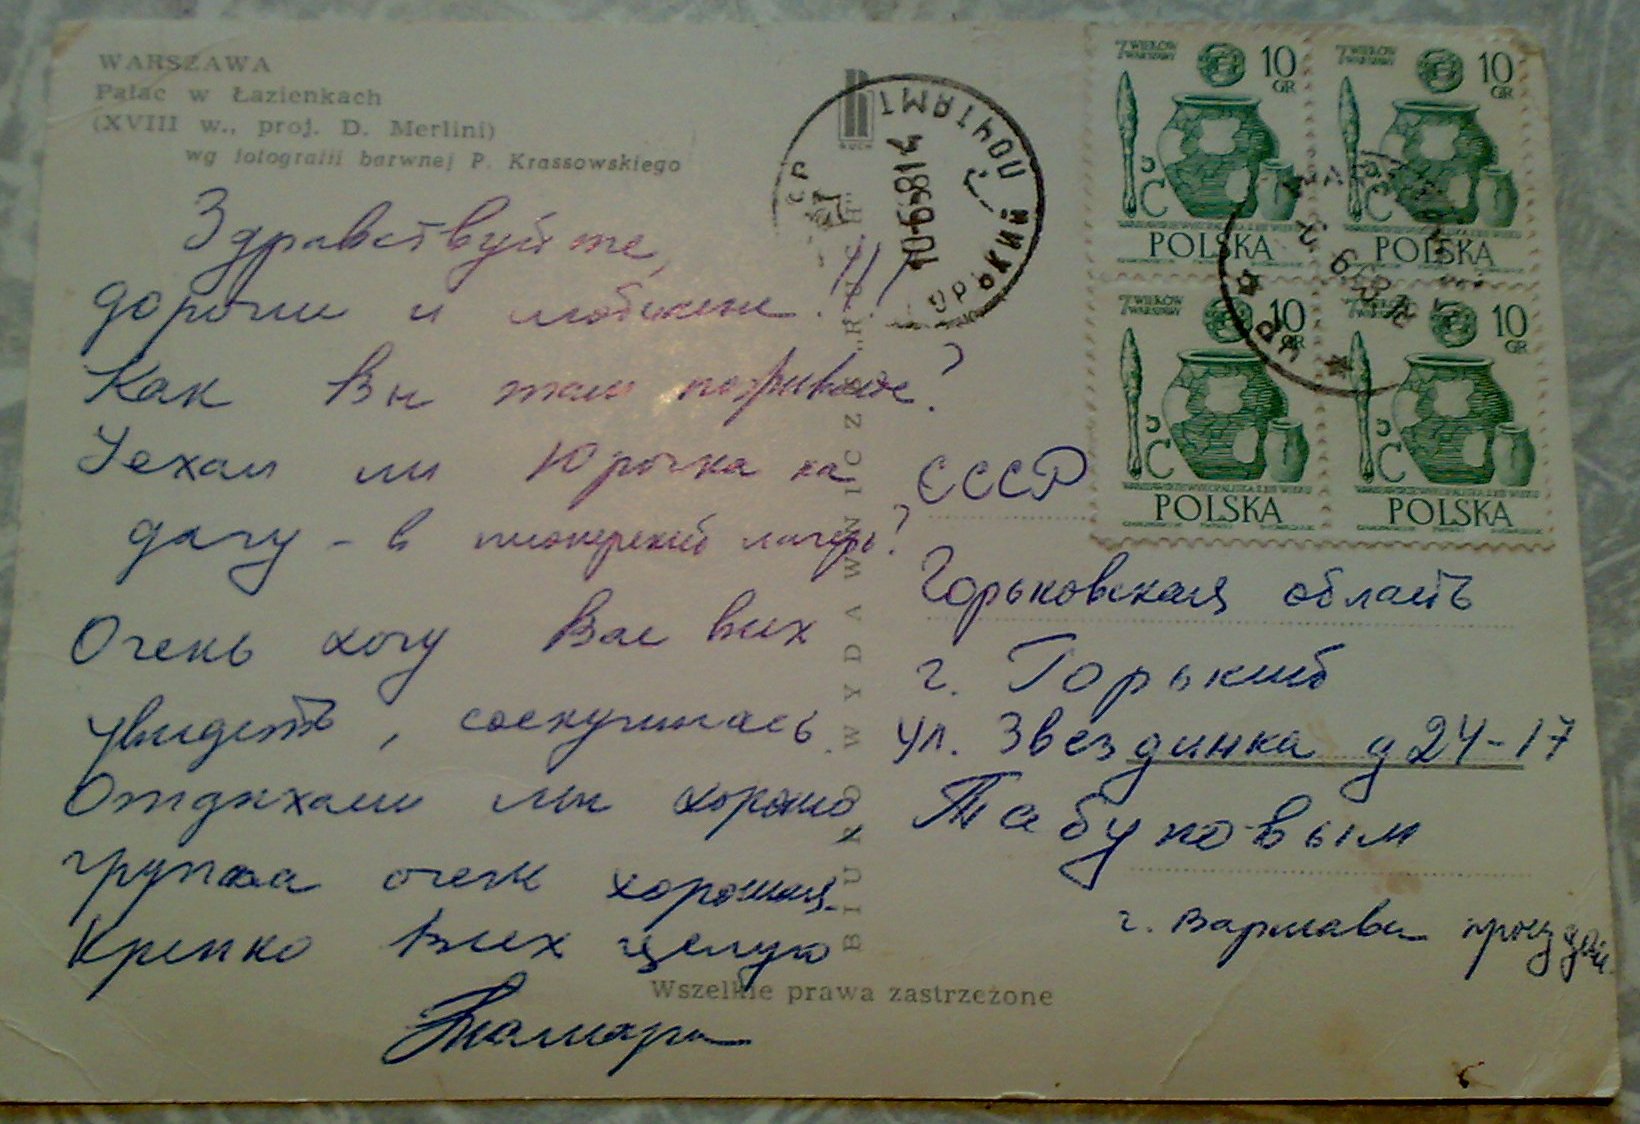 WARSZAWA
Pałac w Łazienkach
(XVIII w., proj. D. Merlini)
wg fotografii barwnej P. Krassowskiego
Здравствуйте,
дорогие и любимые!!!
Как Вы там поживаете?
Уехал ли Юрочка на
дачу - в пионерский лагерь?
Очень хочу Вас всех
увидеть, соскучилась.
Отдыхаем мы хорошо,
группа очень хорошая.
Крепко Всех целую
Тамара
BIURO WYDAWNICZE "RUCH"
RUCH
Wszelkie prawa zastrzeżone
ГОРЬКИЙ ПОЧТАМТ
10-6-6814
7 WIEKÓW WARSZAWY
10 GR
POLSKA
7 WIEKÓW WARSZAWY
10 GR
POLSKA
7 WIEKÓW WARSZAWY
10 GR
POLSKA
7 WIEKÓW WARSZAWY
10 GR
POLSKA
СССР
Горьковская область
г. Горький
ул. Звездинка д 24-17
Табуновым
г. Варшава проездом